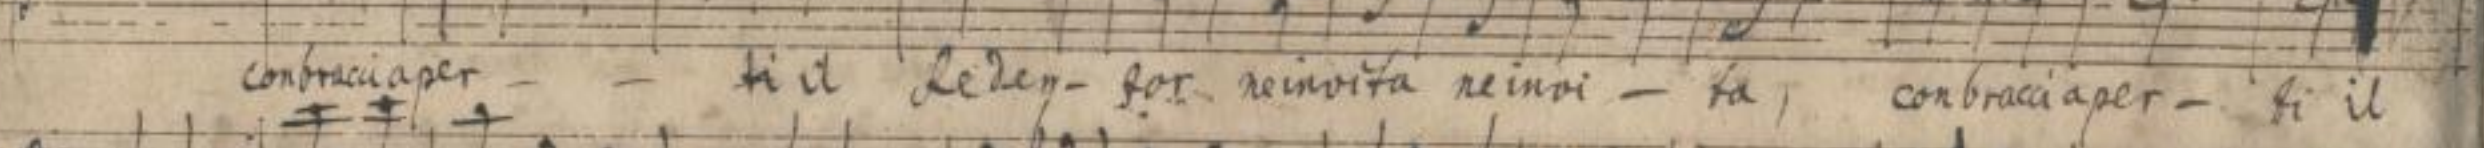 conbracciaper - - ti il Reden- tor neinvita neinvi - ta, conbracciaper - ti il